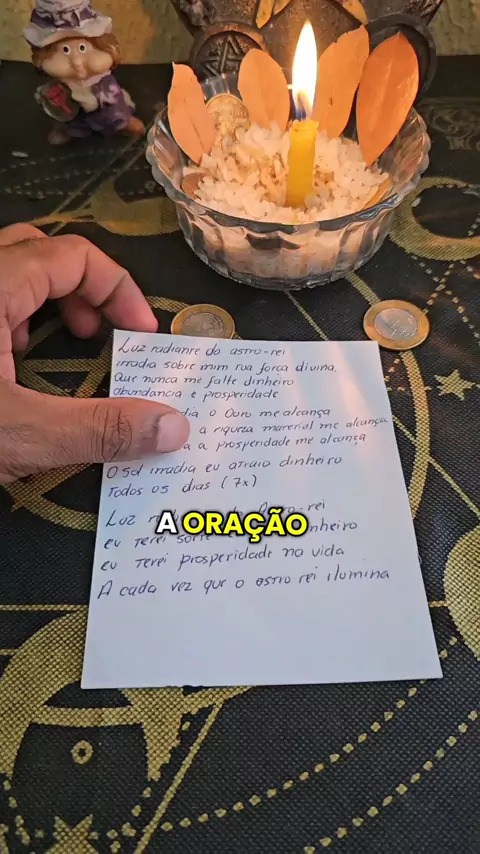 Luz radiante do astro-rei
irradia sobre mim rua força divina,
Que nunca me falte dinheiro
abundancia e prosperidade
o Ouro me alcança
a riqueza material me alcança
a prosperidade me alcança
O Sol irradia eu atraio dinheiro
Todos os dias (7x)
Luz -rei
eu terei
eu terei prosperidade na vida
A cada vez que o astro rei ilumina
A ORAÇÃO